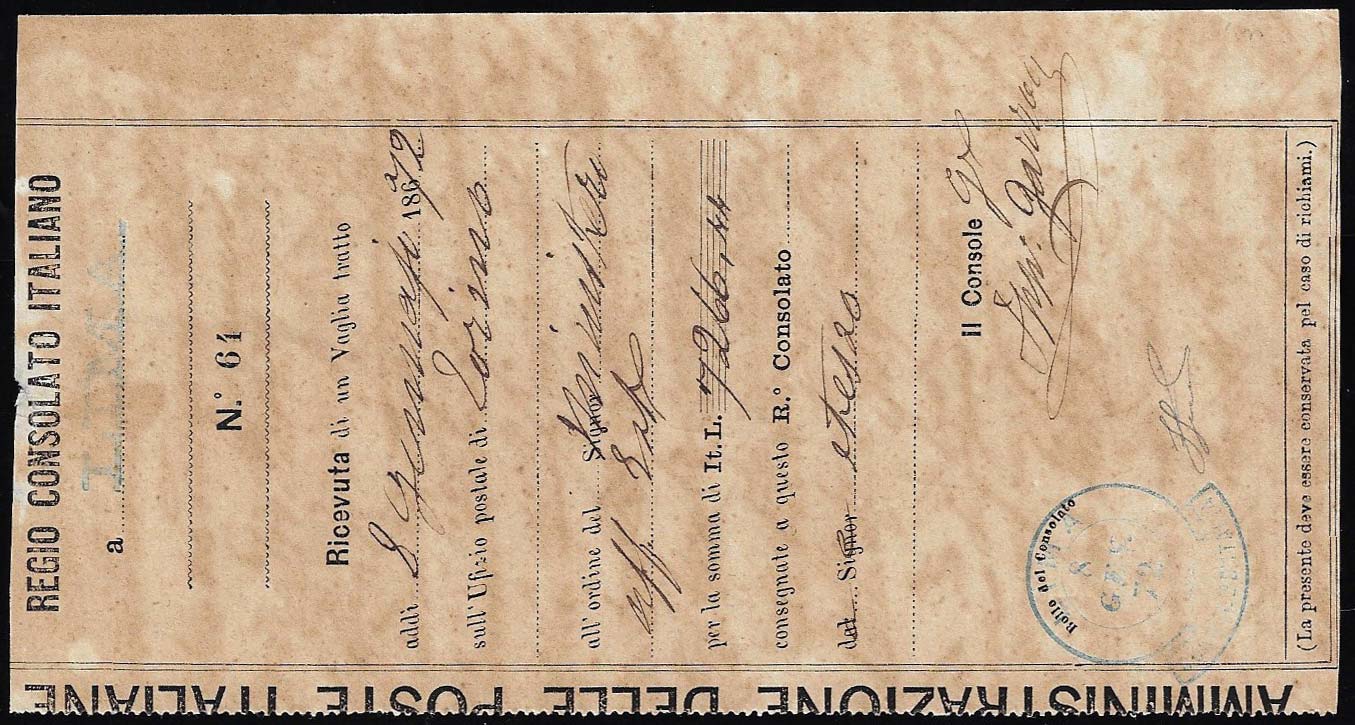 REGIO CONSOLATO ITALIANO
a LIMA
N.° 64
Ricevuta di un Vaglia tratto
addì 8 Gennajo 1872
sull'Ufizio postale di Torino
all'ordine del Signor Ministero
Est
per la somma di It.L. 7266,44
consegnate a questo R.° Consolato
dal Signor stesso
Il Console
Ipp.
(La presente deve essere conservata pel caso di richiami.)
Bollo del Consolato
LIMA
8
GEN
72
AMMINISTRAZIONE DELLE POSTE ITALIANE